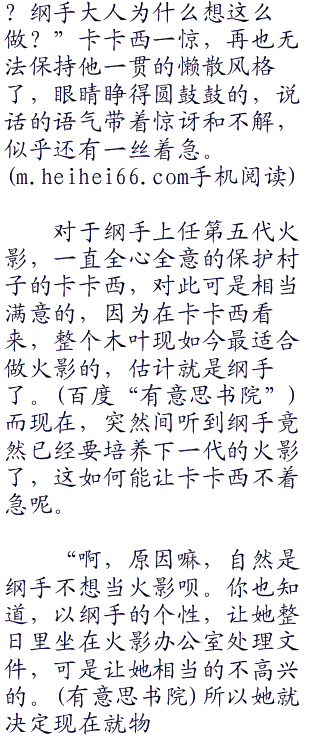 ？纲手大人为什么想这么
做？”卡卡西一惊，再也无
法保持他一贯的懒散风格
了，眼睛睁得圆鼓鼓的，说
话的语气带着惊讶和不解，
似乎还有一丝着急。
(m.heihei66.com手机阅读)
对于纲手上任第五代火
影，一直全心全意的保护村
子的卡卡西，对此可是相当
满意的，因为在卡卡西看
来，整个木叶现如今最适合
做火影的，估计就是纲手
了。(百度“有意思书院”)
而现在，突然间听到纲手竟
然已经要培养下一代的火影
了，这如何能让卡卡西不着
急呢。
“啊，原因嘛，自然是
纲手不想当火影呗。你也知
道，以纲手的个性，让她整
日里坐在火影办公室处理文
件，可是让她相当的不高兴
的。(有意思书院)所以她就
决定现在就物